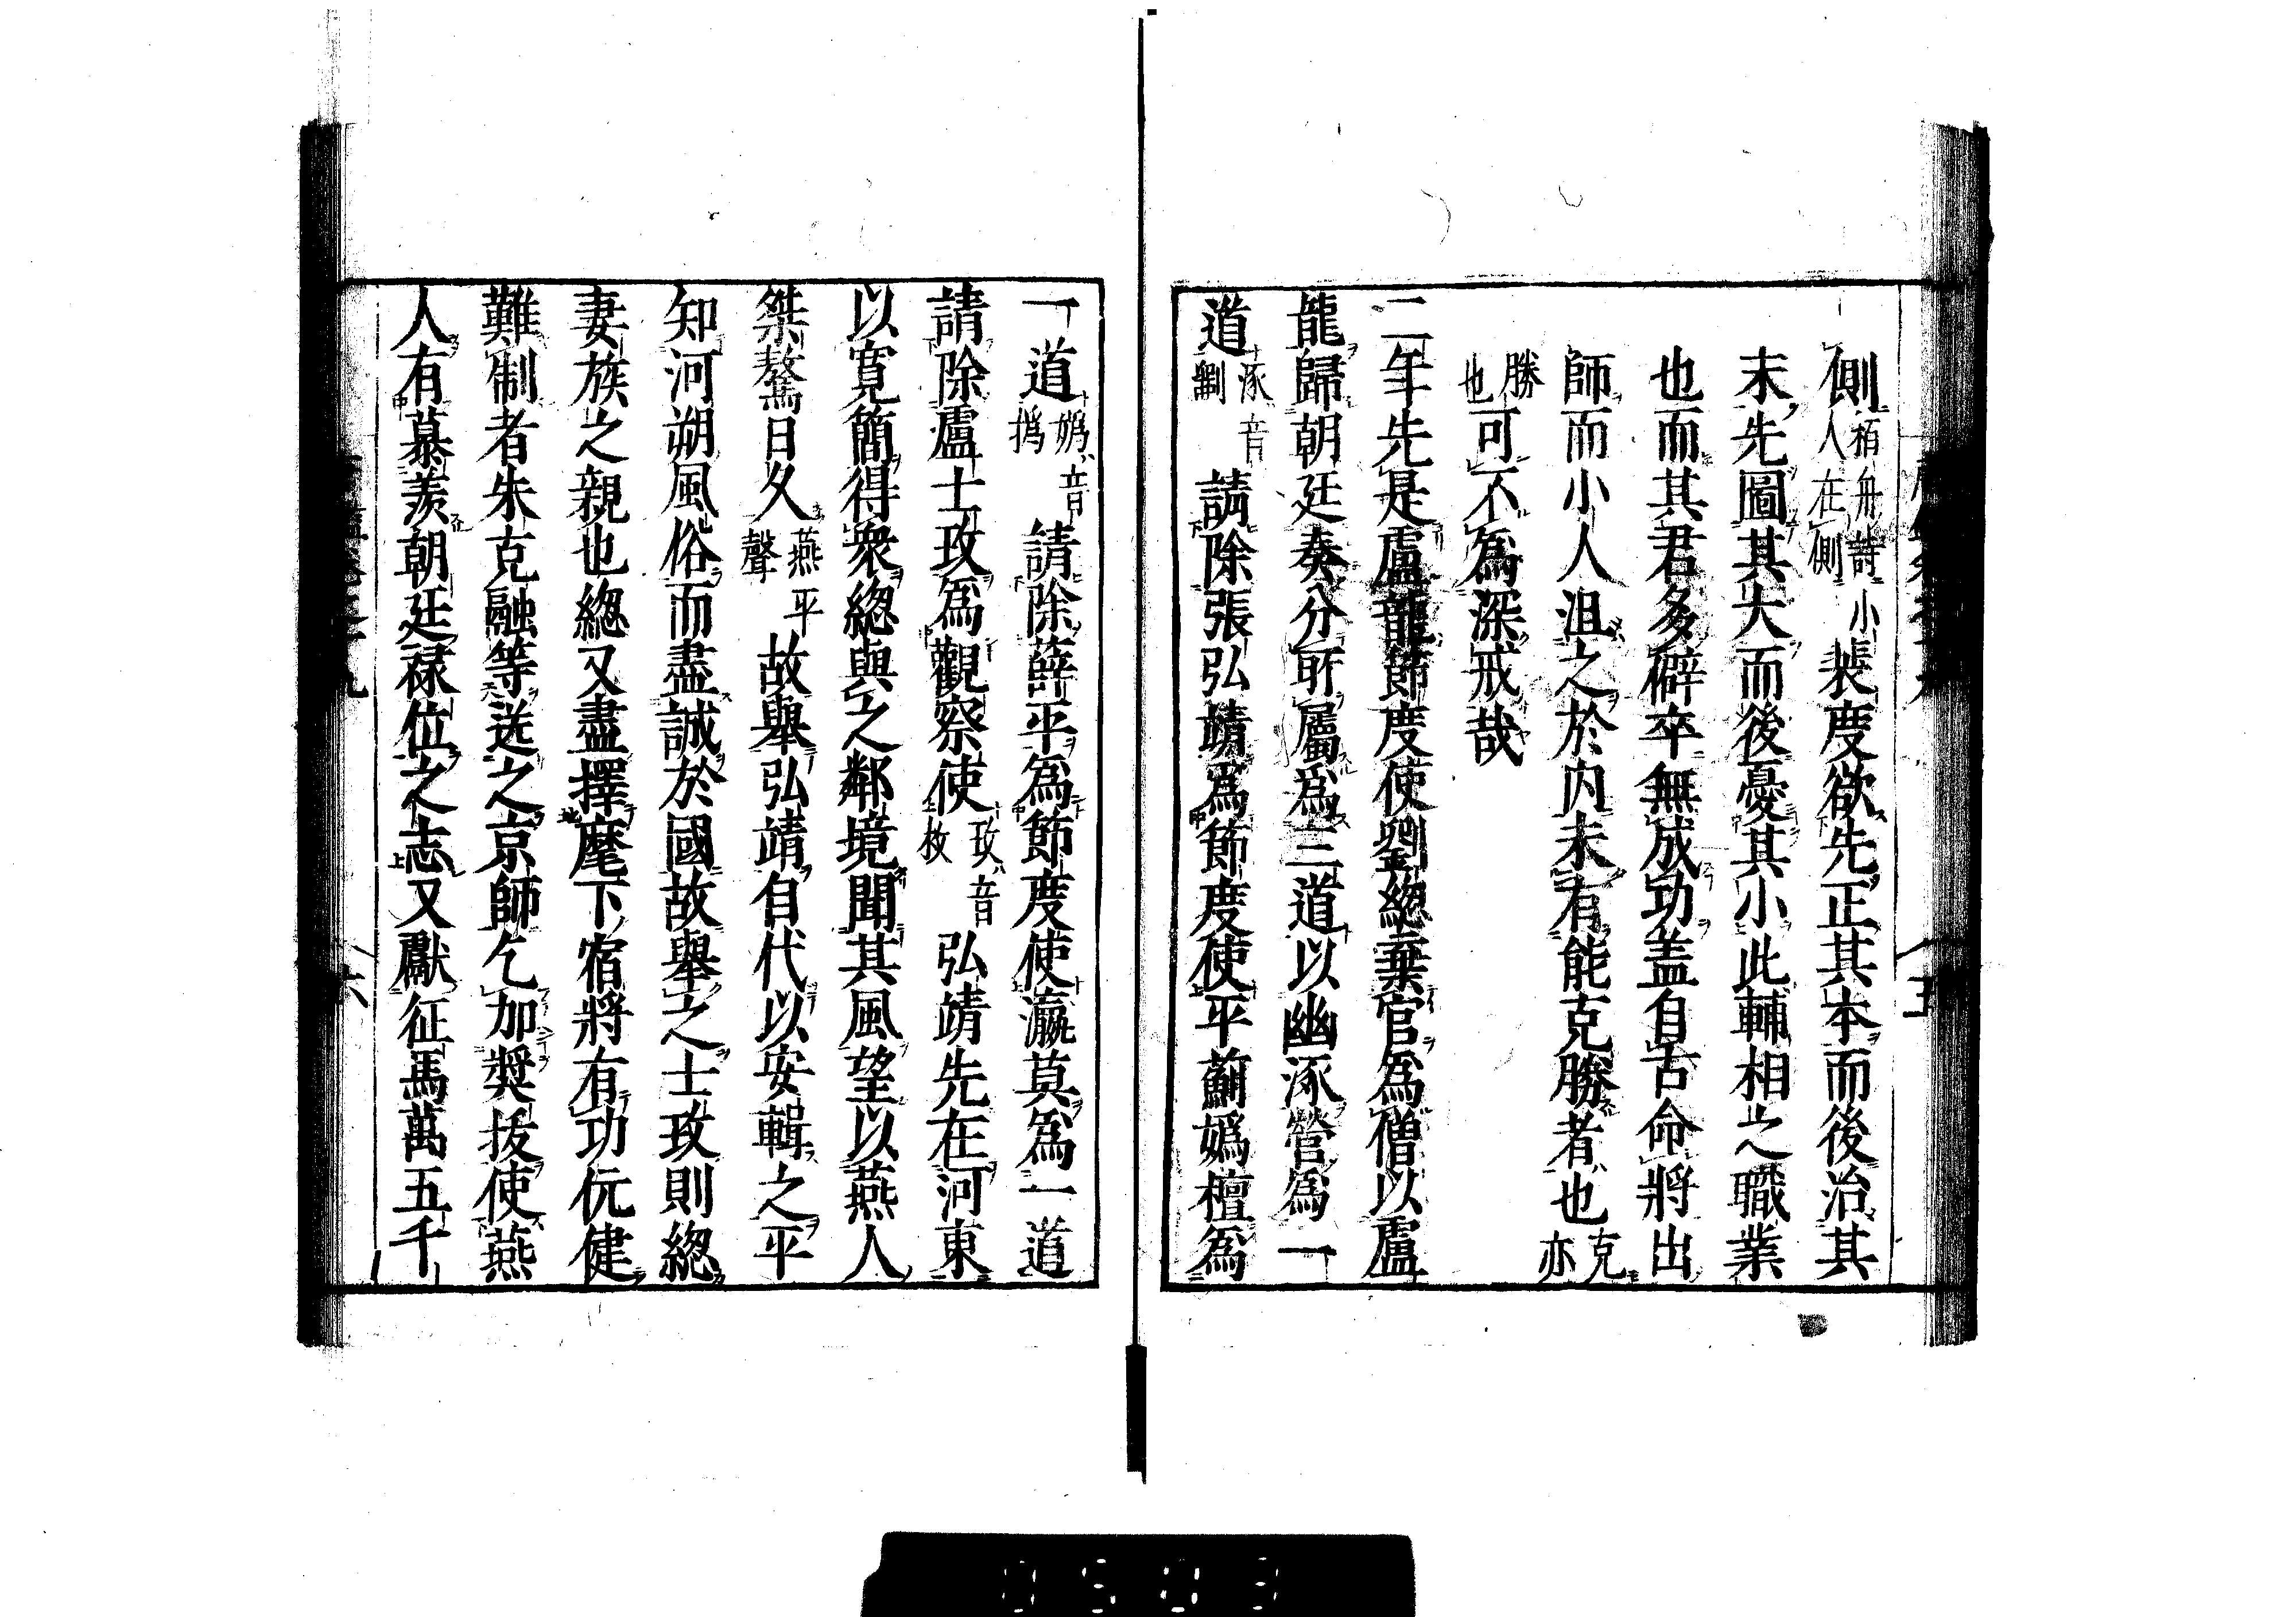 側栢舟詩小人在側裴度欲先正其本而後治其
末先圖其大而後憂其小此輔相之職業
也而其君多僻卒無成功盖自古命將出
師而小人沮之於内未有能克勝者也克亦
勝也可不爲深戒哉
二年先是盧龍節度使劉緫棄官爲僧以盧
龍歸朝廷奏分所屬爲三道以幽涿營爲一
道涿音劅請除張弘靖爲節度使平薊嬀檀爲
一道嬀音撝請除薛平爲節度使瀛莫爲一道
請除盧士玫爲觀察使玫音枚弘靖先在河東
以寛簡得衆緫與之鄰境聞其風望以燕人
桀驁日久燕平聲故舉弘靖自代以安輯之平
知河朔風俗而盡誠於國故舉之士玫則緫
妻族之親也緫又盡擇麾下宿將有功伉健
難制者朱克融等送之京師乞加奨拔使燕
人有慕羨朝廷禄位之志又獻征馬萬五千